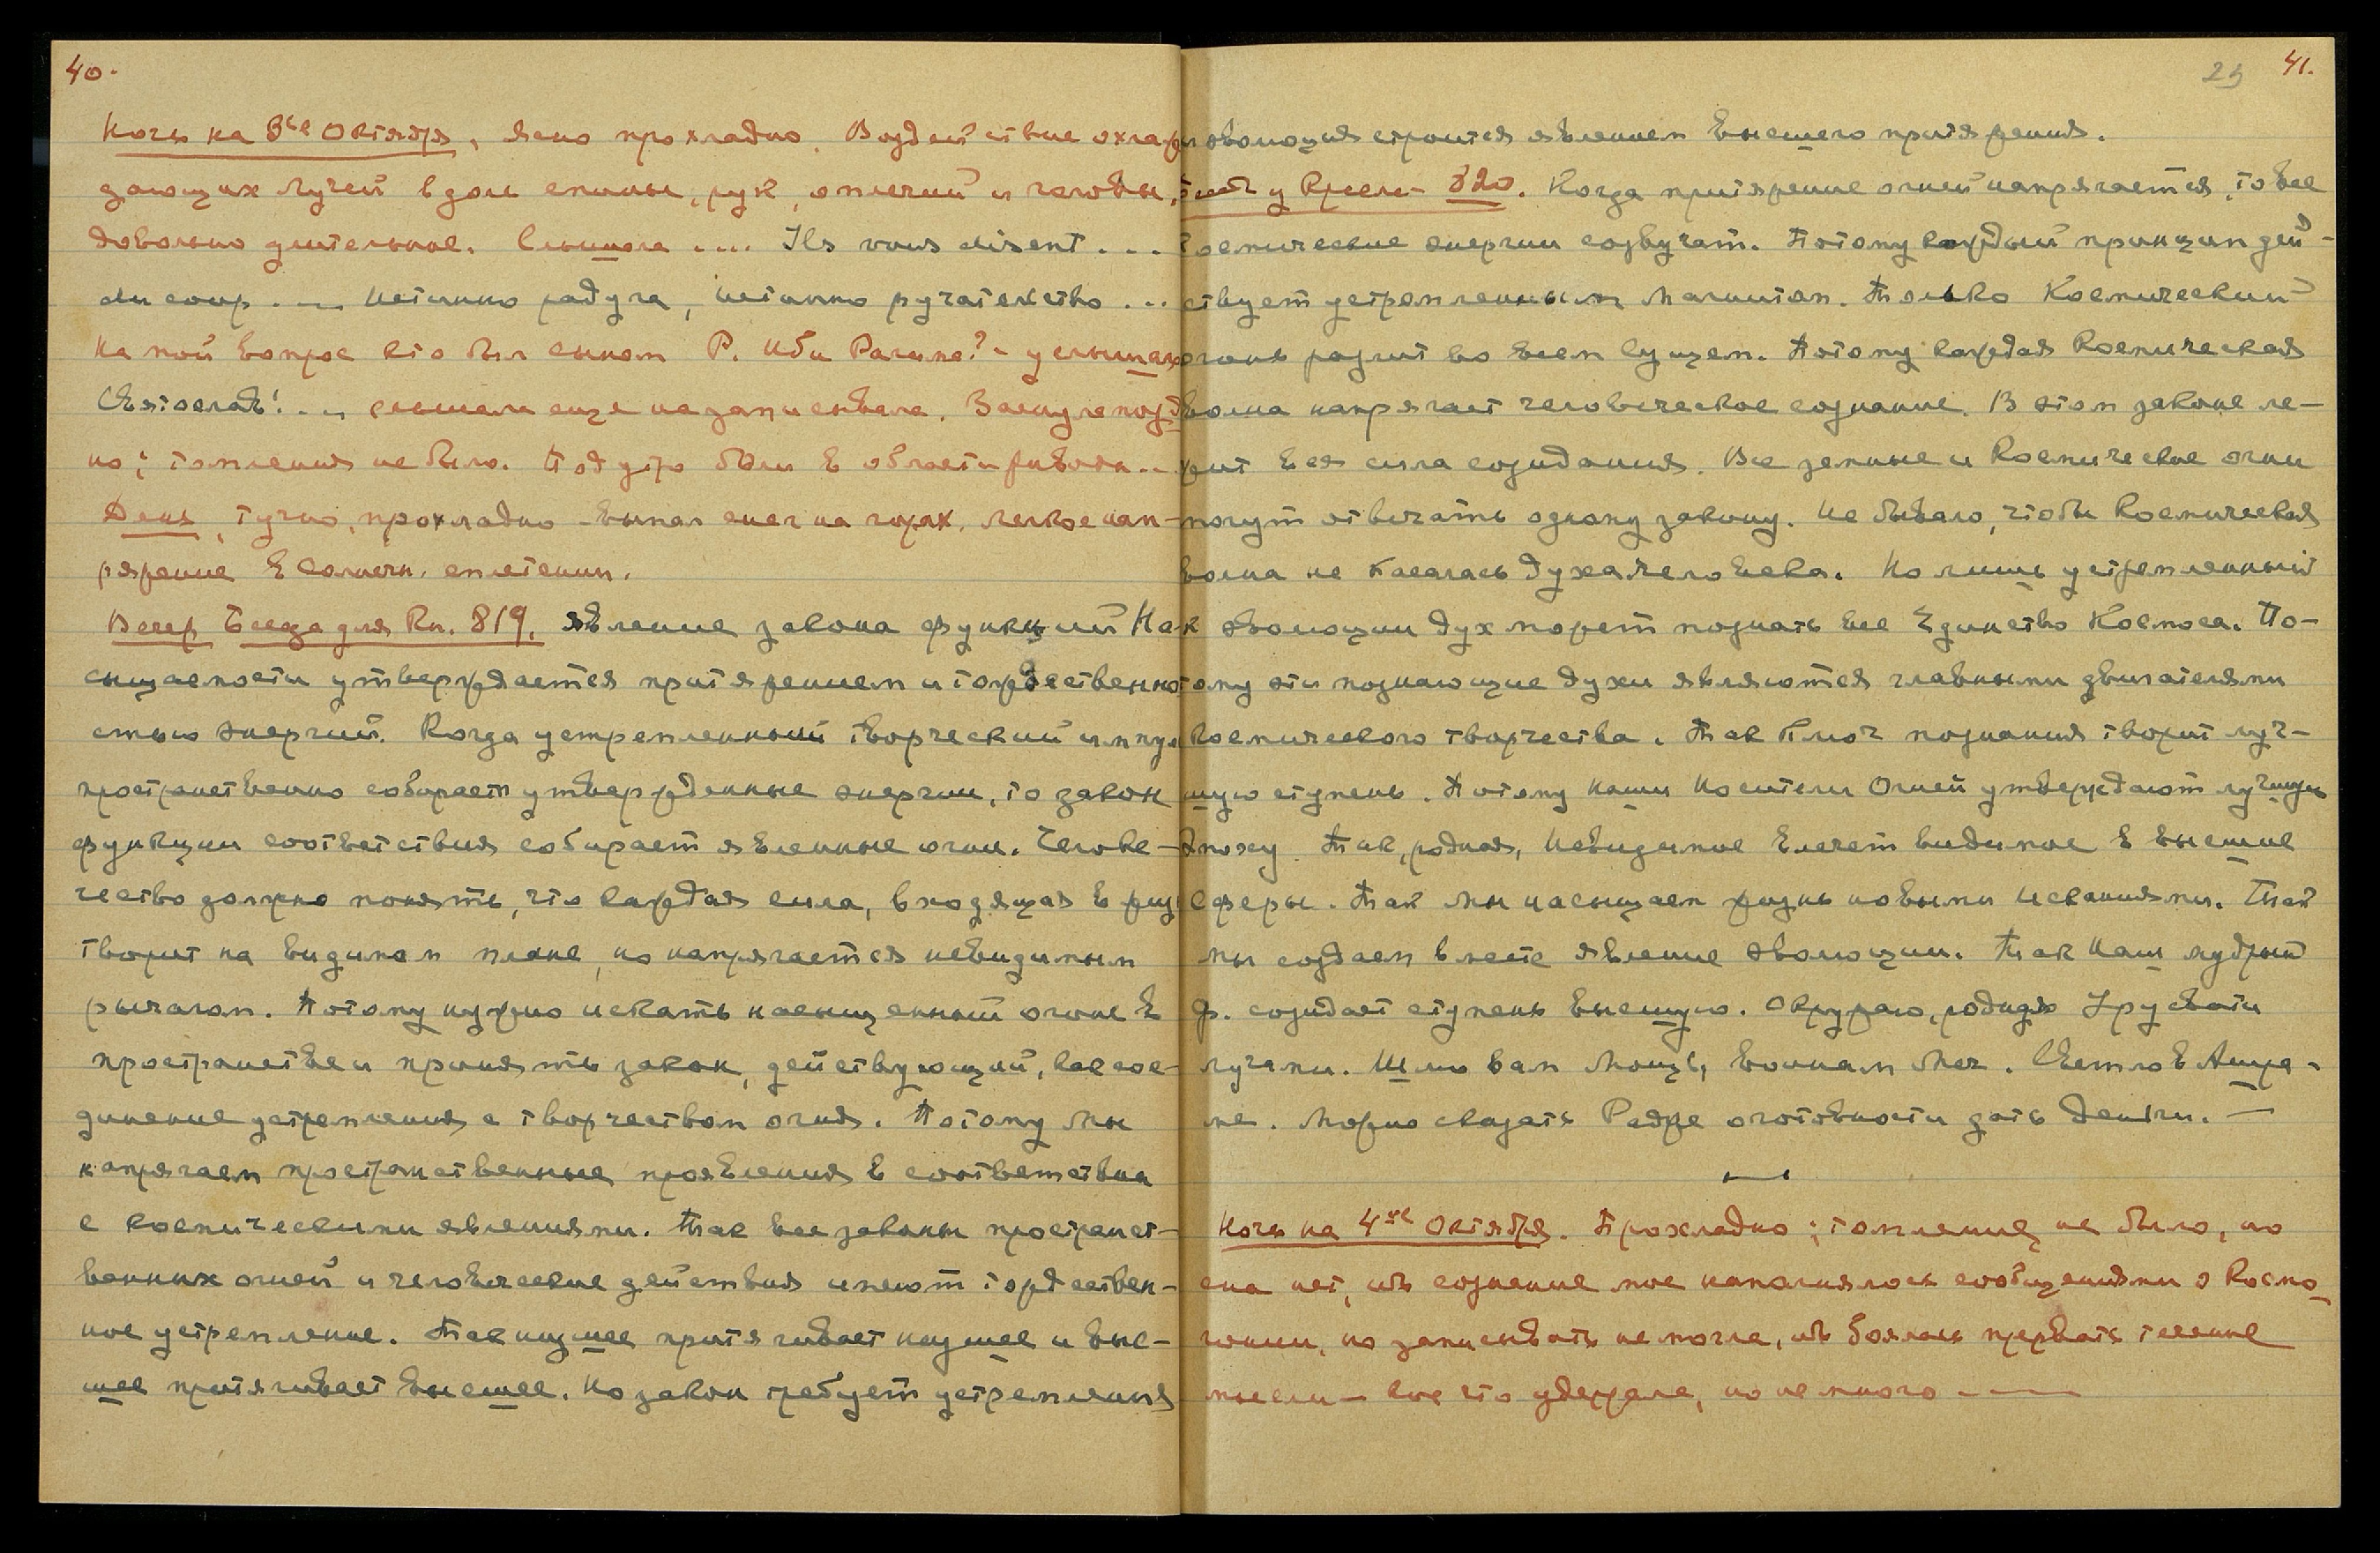 40.
Ночь на 3ье Октября, ясно прохладно. Воздействие охлаж
дающих Лучей вдоль спины, рук, оплечий и головы,
довольно длительное. Слышала .... Ils vous disent...
du coup... Истинно радуга, Истинно ручательство...
На мой вопрос кто был сыном Р. Ибн Рагима? - услышала
Святослав!... слышала еще не записывала. Заснула позд
но; томления не было. Под утро боли в области живота...
День, тучно, прохладно - выпал снег на горах, легкое нап-
ряжение в солнечн. сплетении.
Вечер Беседа для Кн. 819. явление закона функций На-
сыщаемости утверждается притяжением и тождественно
стью энергий. Когда устремленный творческий импул
пространственно собирает утвержденные энергии, то закон
функции соответствия собирает явленные огни. Челове-
чество должно понять, что каждая сила, входящая в жиз
творит на видимом плане, но напрягается невидимым
рычагом. Потому нужно искать насыщенный огонь в
пространстве и принять закон, действующий, как сое-
динение устремления с творчеством огня. Потому Мы
напрягаем пространственные проявления в соответствии
с космическими явлениями. Так все законы пространст-
венных огней и человеческие действия имеют тождествен-
ное устремление. Так низшее притягивает низшее и выс-
шее притягивает высшее. Но закон требует устремления
25 41.
эволюция строится явлением Высшего притяжения.
820. Когда притяжение огней напрягается, то все
Космические энергии созвучат. Потому каждый принцип дей-
ствует устремленным Магнитом. Только Космический
огонь разлит во всем Сущем. Потому каждая Космическая
волна напрягает человеческое сознание. В этом законе ле-
жит вся сила созидания. Все земные и Космические огни
могут отвечать одному закону. Не бывало, чтобы Космическая
волна не касалась духа человека. Но лишь устремленный
к эволюции дух может познать все Единство Космоса. По-
тому эти познающие духи являются главными двигателями
Космического творчества. Так Ключ познания творит луч-
шую ступень. Потому Наши Носители Огней утверждают лучшую
Эпоху. Так, родная, Невидимое влечет видимое в высшие
Сферы. Так Мы насыщаем жизнь новыми исканиями. Так
мы создаем вместе явление эволюции. Так Наш мудрый
Ф. созидает ступень высшую. Окружаю, родную Урусвати
лучами. Шлю вам Мощь, воинам Меч. Светло в Ашра-
ме. Можно сказать Радже о готовности дать деньги. —
Ночь на 4ое Октября. Прохладно; томления не было, но
сна нет, ибо сознание мое наполнялось сообщениями о Космо
гонии, но записывать не могла, ибо боялась прервать течение
мысли — кое что удержала, но не много ——